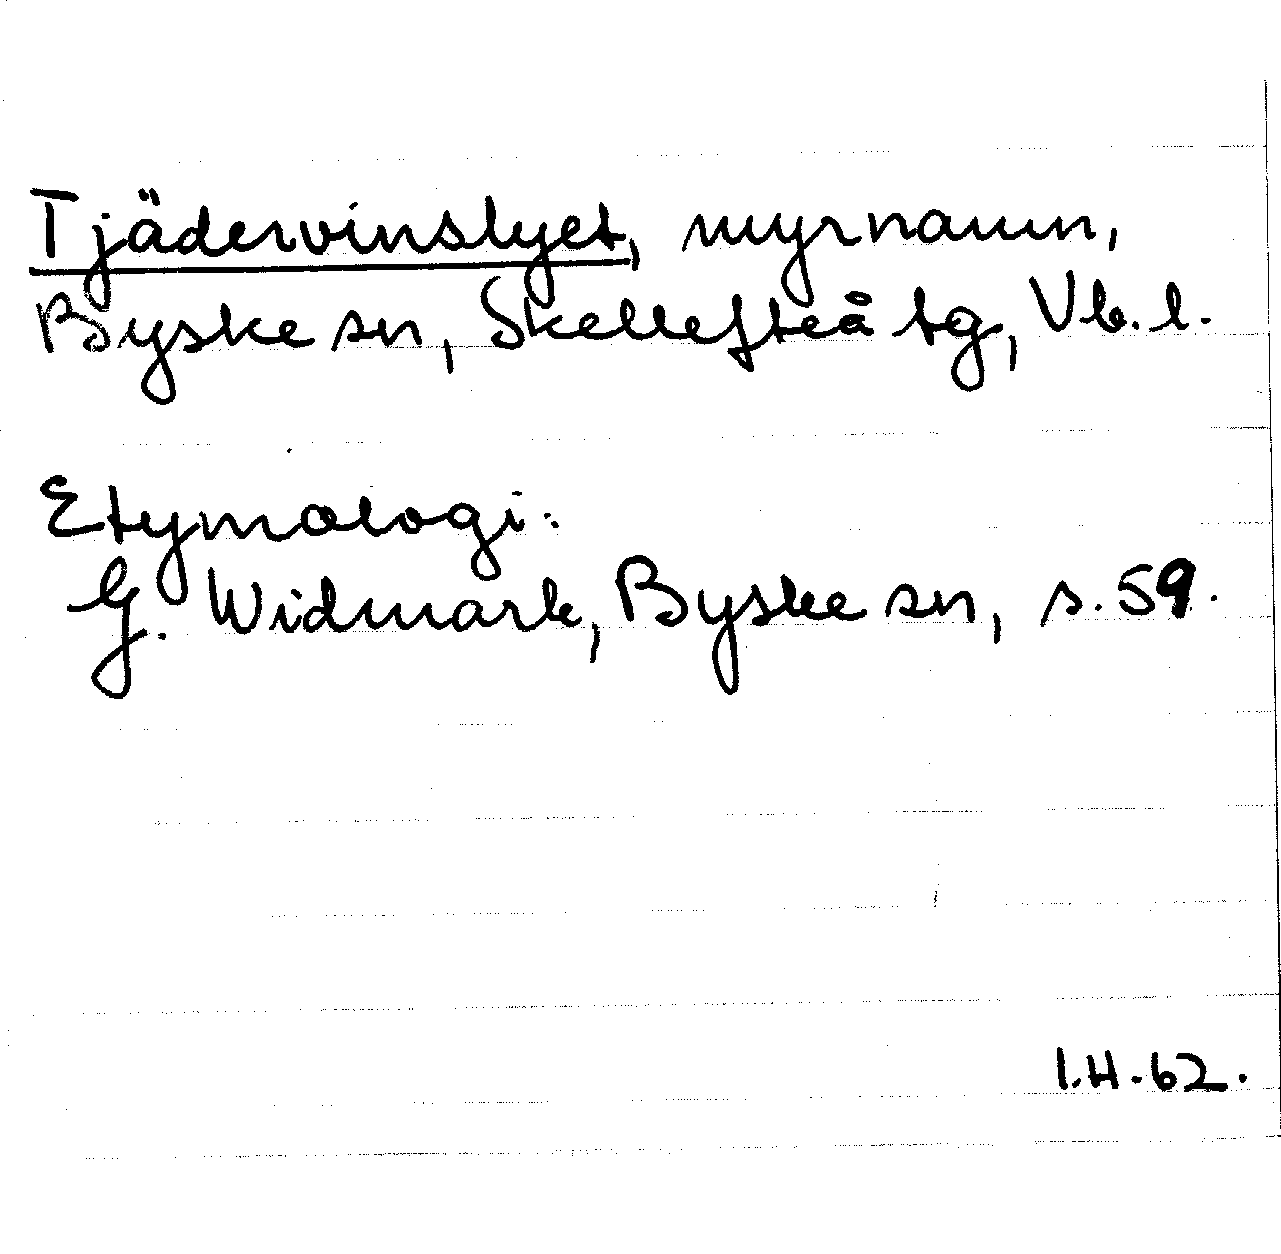 Tjädervinslyet, myrnamn,
Byske sn, Skellefteå tg, Vb. l.
Etymologi:
G. Widmark, Byske sn, s. 59.
I.H. 62.